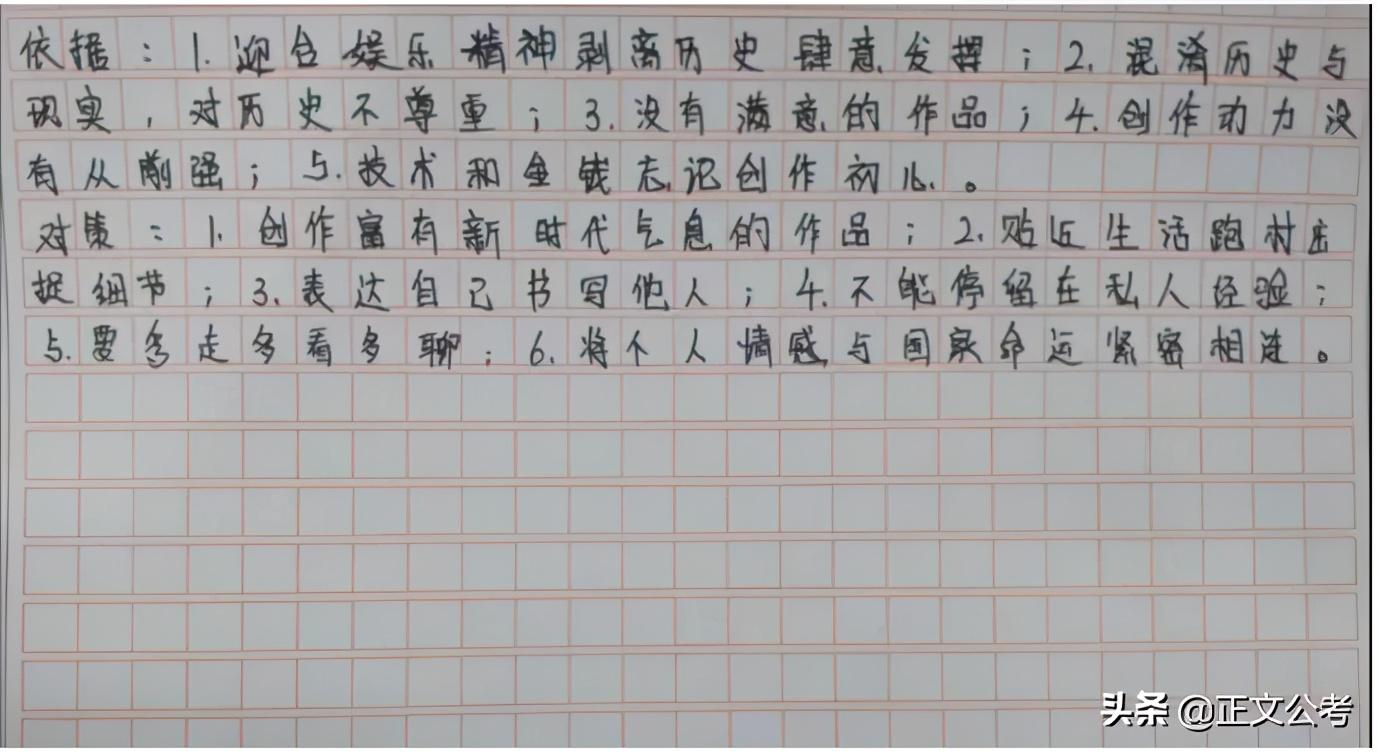 依据：1.迎合娱乐精神剥离历史肆意发挥；2.混淆历史与
现实，对历史不尊重；3.没有满意的作品；4.创作动力没
有从前强；5.技术和金钱忘记创作初心。
对策：1.创作富有新时代气息的作品；2.贴近生活跑村庄
捉细节；3.表达自己书写他人；4.不能停留在私人经验；
5.要多走多看多聊；6.将个人情感与国家命运紧密相连。
头条 @正文公考